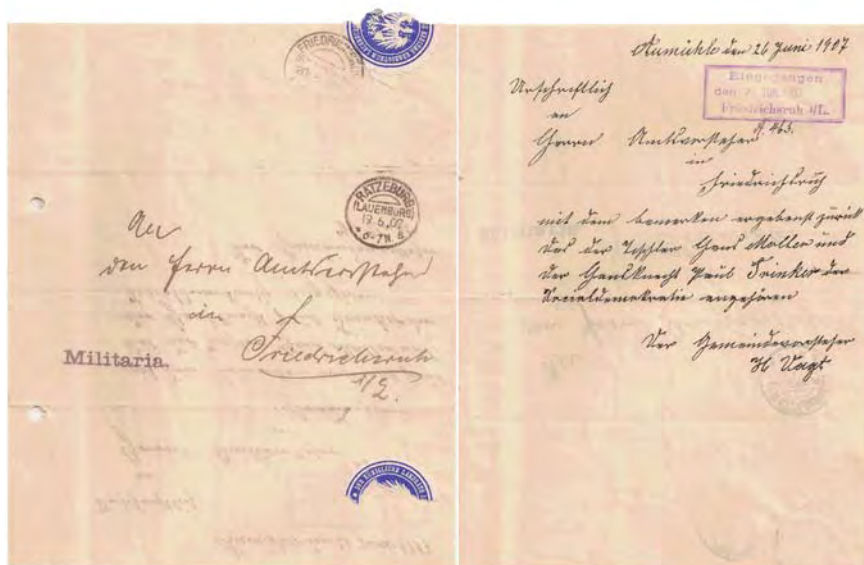 RATZEBURG
(LAUENBURG)
19.6.07
6-7N.
An
den Herrn Amtsvorsteher
in
Friedrichsruh
i/L.
Militaria.
Aumühle den 26 Juni 1907
Eingegangen
den
Friedrichsruh i/L.
Urschriftlich
an
Herrn Amtsvorsteher
in
Friedrichsruh
mit dem bemerken ergebenst zurück
das der Tischler Hans Möller und
der Hausknecht Paul Trinker der
Socialdemokratie angehören
Der Gemeindevorsteher
H Vagt